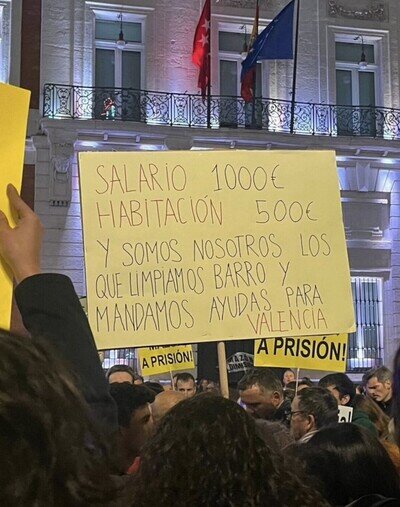 SALARIO 1000€
HABITACIÓN 500€
Y SOMOS NOSOTROS LOS
QUE LIMPIAMOS BARRO Y
MANDAMOS AYUDAS PARA
VALENCIA
A PRISIÓN!
A PRISIÓN!